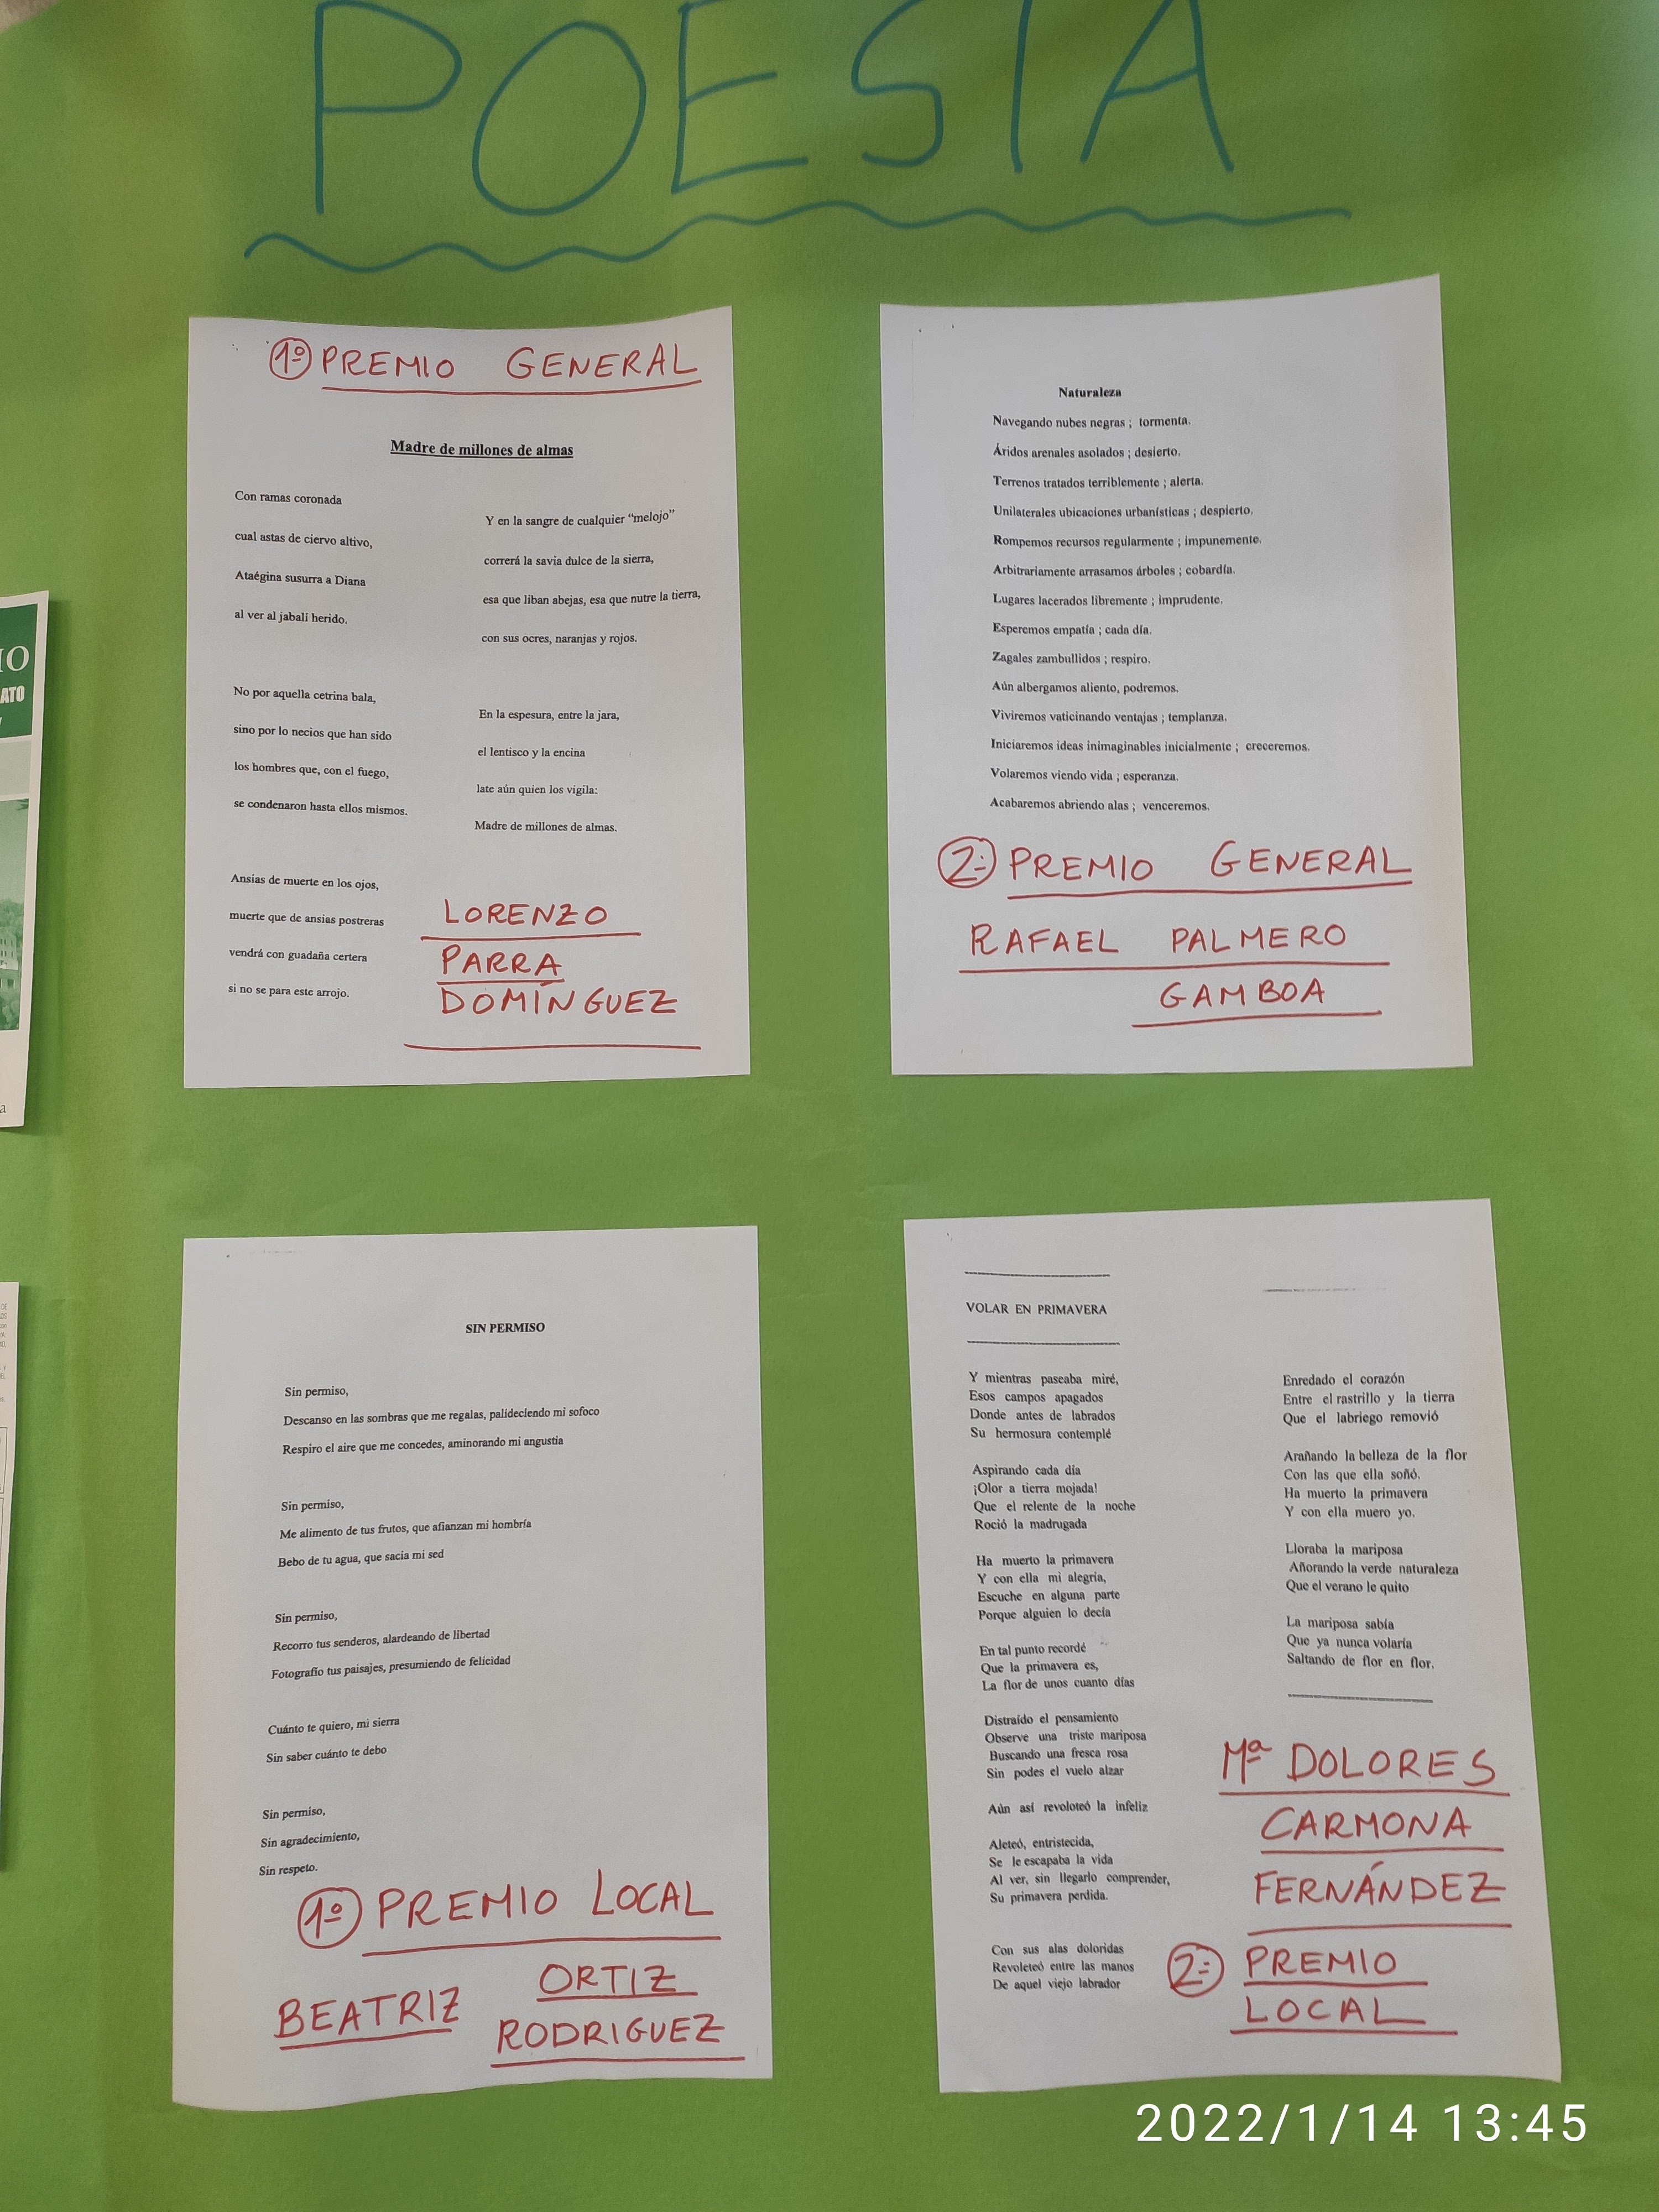 POESIA
1º PREMIO GENERAL
Madre de millones de almas
Con ramas coronada
cual astas de ciervo altivo,
Ataégina susurra a Diana
al ver al jabalí herido.
No por aquella cetrina bala,
sino por lo necios que han sido
los hombres que, con el fuego,
se condenaron hasta ellos mismos.
Ansias de muerte en los ojos,
muerte que de ansias postreras
vendrá con guadaña certera
si no se para este arrojo.
Y en la sangre de cualquier “melojo”
correrá la savia dulce de la sierra,
esa que liban abejas, esa que nutre la tierra,
con sus ocres, naranjas y rojos.
En la espesura, entre la jara,
el lentisco y la encina
late aún quien los vigila:
Madre de millones de almas.
LORENZO
PARRA
DOMÍNGUEZ
Naturaleza
Navegando nubes negras ; tormenta.
Áridos arenales asolados ; desierto.
Terrenos tratados terriblemente ; alerta.
Unilaterales ubicaciones urbanísticas ; despierto.
Rompemos recursos regularmente ; impunemente.
Arbitrariamente arrasamos árboles ; cobardía.
Lugares lacerados libremente ; imprudente.
Esperemos empatía ; cada día.
Zagales zambullidos ; respiro.
Aún albergamos aliento, podremos.
Viviremos vaticinando ventajas ; templanza.
Iniciaremos ideas inimaginables inicialmente ; creceremos.
Volaremos viendo vida ; esperanza.
Acabaremos abriendo alas ; venceremos.
2º PREMIO GENERAL
RAFAEL PALMERO
GAMBOA
SIN PERMISO
Sin permiso,
Descanso en las sombras que me regalas, palideciendo mi sofoco
Respiro el aire que me concedes, aminorando mi angustia
Sin permiso,
Me alimento de tus frutos, que afianzan mi hombría
Bebo de tu agua, que sacia mi sed
Sin permiso,
Recorro tus senderos, alardeando de libertad
Fotografío tus paisajes, presumiendo de felicidad
Cuánto te quiero, mi sierra
Sin saber cuánto te debo
Sin permiso,
Sin agradecimiento,
Sin respeto.
1º PREMIO LOCAL
BEATRIZ ORTIZ
RODRIGUEZ
VOLAR EN PRIMAVERA
Y mientras paseaba miré,
Esos campos apagados
Donde antes de labrados
Su hermosura contemplé
Aspirando cada día
¡Olor a tierra mojada!
Que el relente de la noche
Roció la madrugada
Ha muerto la primavera
Y con ella mi alegría,
Escuche en alguna parte
Porque alguien lo decía
En tal punto recordé
Que la primavera es,
La flor de unos cuanto días
Distraído el pensamiento
Observe una triste mariposa
Buscando una fresca rosa
Sin podes el vuelo alzar
Aún así revoloteó la infeliz
Aleteó, entristecida,
Se le escapaba la vida
Al ver, sin llegarlo comprender,
Su primavera perdida.
Con sus alas doloridas
Revoleteó entre las manos
De aquel viejo labrador
Enredado el corazón
Entre el rastrillo y la tierra
Que el labriego removió
Arañando la belleza de la flor
Con las que ella soñó.
Ha muerto la primavera
Y con ella muero yo.
Lloraba la mariposa
Añorando la verde naturaleza
Que el verano le quito
La mariposa sabía
Que ya nunca volaría
Saltando de flor en flor.
Mª DOLORES
CARMONA
FERNÁNDEZ
2º PREMIO
LOCAL
2022/1/14 13:45